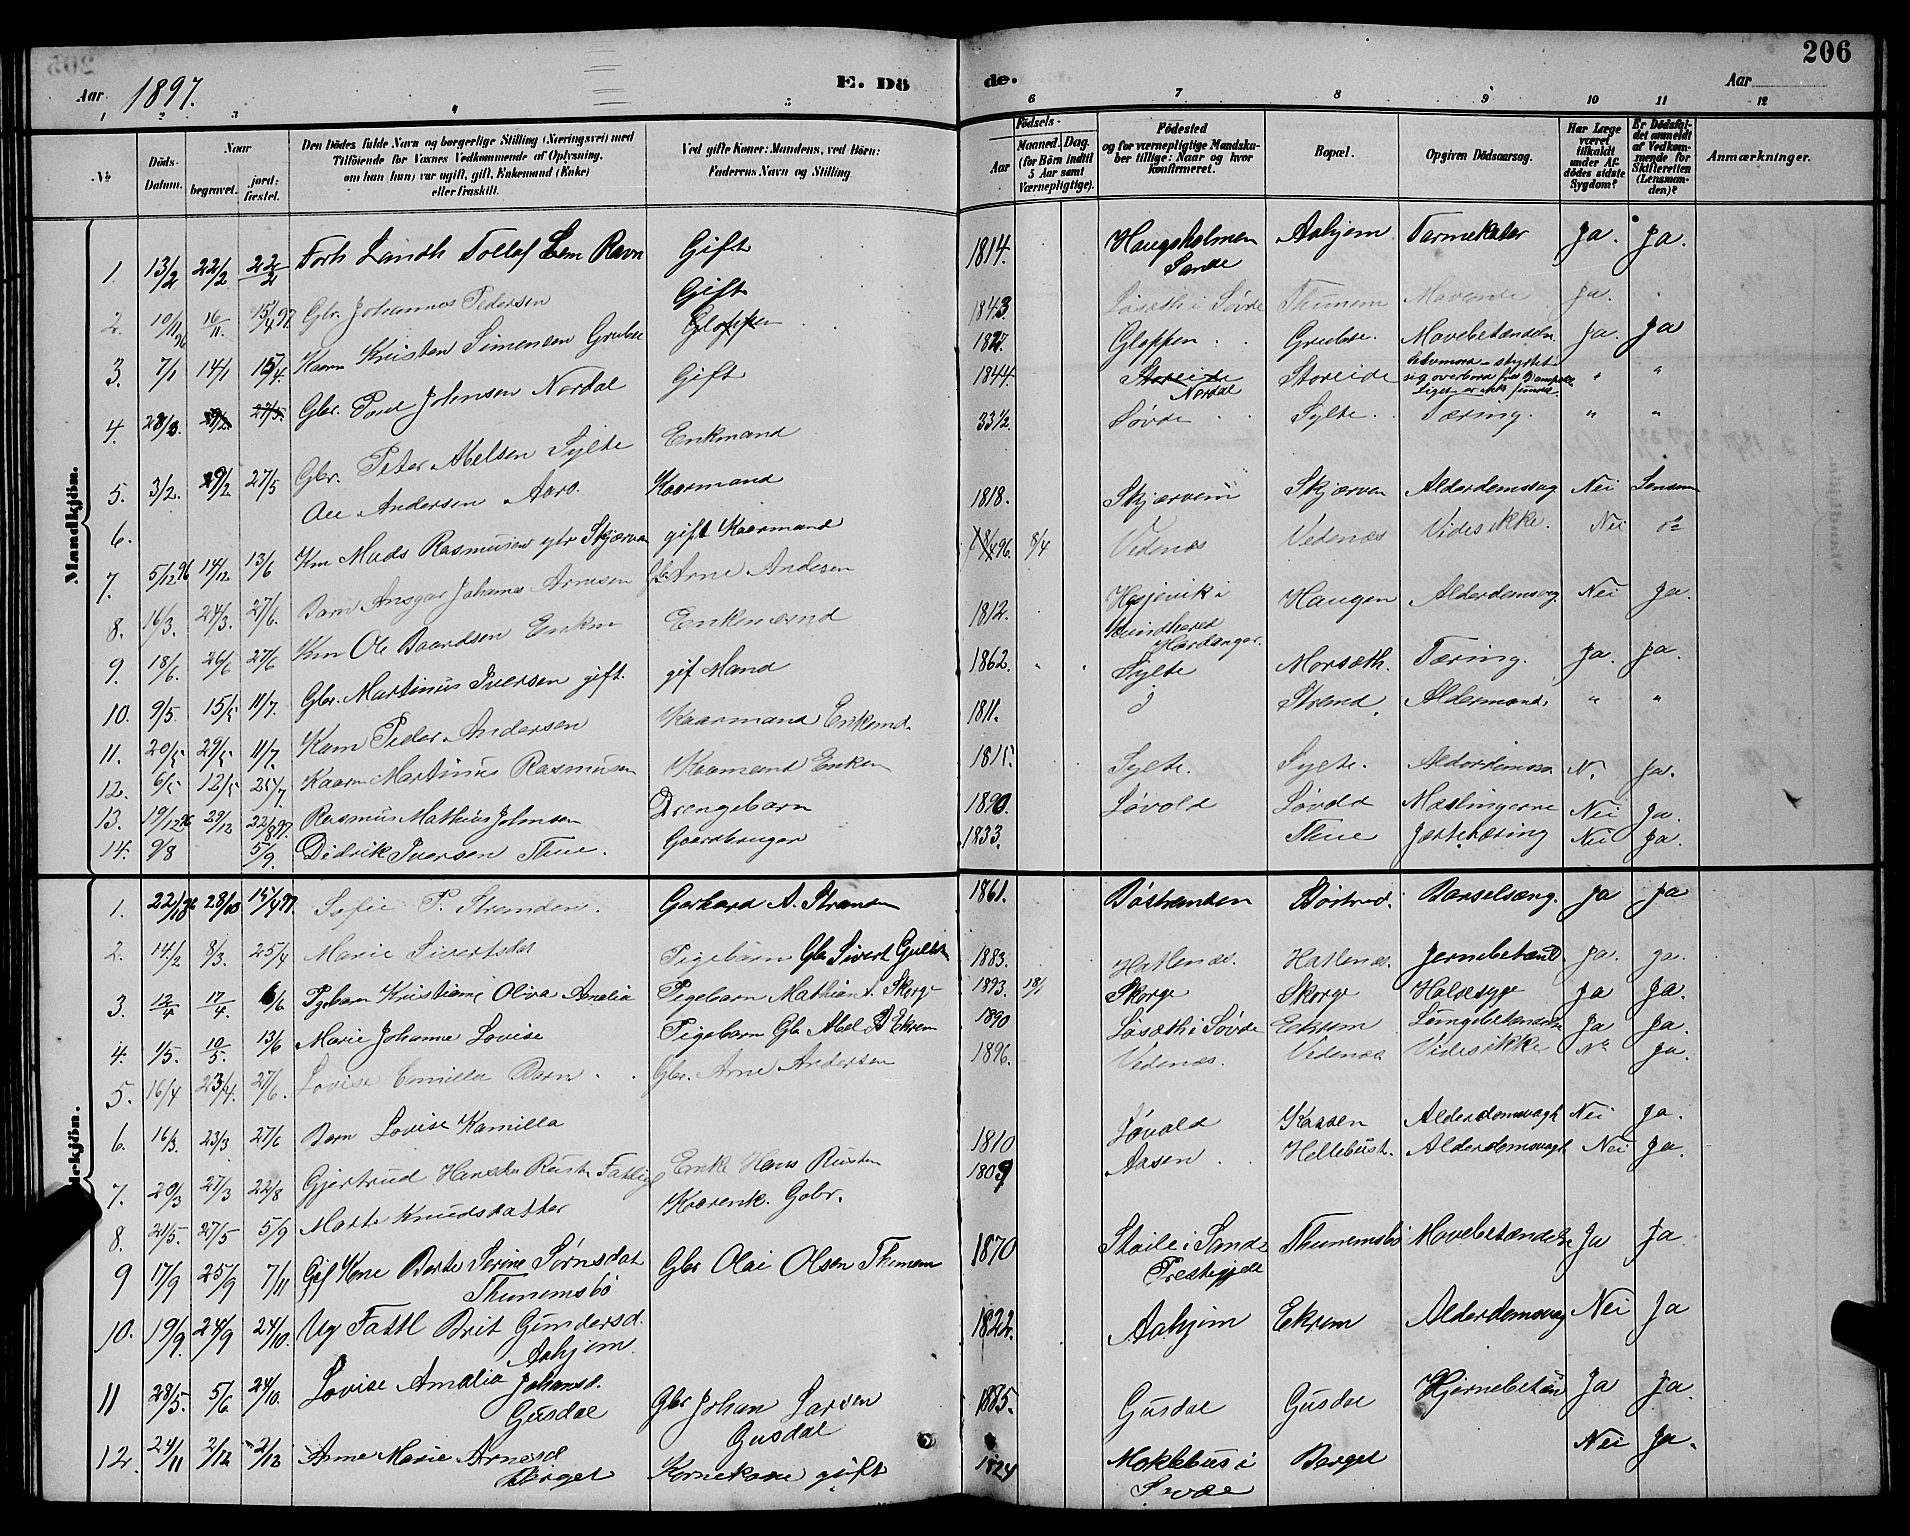 206
Aar 1897.
E. Dö
de.
Aar
1 2 3 4 5 6 7 8 9 10 11 12
№
Döds-Datum.
Naar
begravet.
jord-fæstet.
Den Dödes fulde Navn og borgerlige Stilling (Næringsvei) med
Tilföiende for Voxnes Vedkommende af Oplysning,
om han (hun) var ugift, gift, Enkemand (Enke)
eller fraskilt.
Ved gifte Koner: Mandens, ved Börn:
Faderens Navn og Stilling.
Födsels-
Aar
Maaned. Dag.
(for Börn indtil 5 Aar samt Værnepligtige).
Födested
og for værnepligtige Mandska-
ber tillige: Naar og hvor
konfirmeret.
Bopæl.
Opgiven Dödsaarsag.
Har Læge været tilkaldt under Af-dödes sidste Sygdom?
Er Dödsfal-det anmeldt af Vedkom-mende for Skifteretten (Lensman-den)?
Anmærkninger.
Mandkjön.
1. 13/2 22/2 22/2 Forh Landh Tollef Lem Ravn Gift 1814. Haugsholmen Sande Aahjem Tarmekatar Ja. Ja.
2. 10/11 96 16/11. 15/4 97 Gbr. Johannes Pedersen Gift 1843 Løseth i Søvde Thunem Mavonde Ja.
3. 7/1 14/1 15/4. Kaarm Kristen Simensen Grubse Gloppen 1827. Gloppen Grubse. Mavebetændelse Ja. Ja
4. 28/3. 27/5. Gbr. Poul Johnsen Nordal Gift 1844. Storeide Nordal Storeide styrtet sig overbord fra Dampsk. Liget er ikke funnet " "
5. 3/2. 9/2 27/5 Gbr. Peter Abelsen Sylte Enkmand 33 1/2 Søvde Sylte. Tæring. " "
6. Ole Andersen Aarø. Kaarmand 1818. Skjærvem Skjærven Alderdomssvag Nei Lensm
7. 5/12 96 14/12 13/6 Km Mads Rasmusen Skjærven gift Kaarmand 96. 8/4 Vedenæs Vedenæs Vides ikke. Nei do
8. 16/3. 24/3. 27/6. Barn Ansgar Johannes Arnesen Gbr. Arne Andesen 1812. i Kvindhered Hardanger. Haugen Alderdomsvag. Nei Ja.
9. 18/6 26/6 27/6 Km Ole Baardsen Enkm Enkemænd 1862. Sylte Morsæth. Tæring. Ja. Ja.
10. 9/5. 15/5 11/7. Gbr. Martinus Iversen gift. gif Mand 1811. Strand. " "
11. 20/5 29/5 11/7. Kaarm Peder Andersen Kaarmand Enkemd. 1815. Sylte. Sylte. N. Ja.
12. 6/5 12/5 25/7 Kaarm Martinus Rasmusen Kaarmand Enkem 1890. Løvold Løvold Mæslingerne Nei Ja.
13. 19/12 96 29/12 22/8 97. Rasmus Mathias Johnsen Drengebarn 1833. Thue Nei Ja.
14. 9/8 5/9. Didrik Iversen Thue. Gaardbruger
1. 22/10 96 28/10 15/4 97. Sofie P. Stranden. Gerhard A. Stranden 1861. Bøstranden Barselseng. Ja Ja
2. 14/2 8/3. 25/4 Marie Sivertsdat Pigebarn Gbr Sivert 1883. Hatlenæs. Hatlenæs. Jernebetænd Ja. Ja.
3. 12/4 17/4. 6/6 Pgbarn Kristiane Oliva Amalia Pigebarn Mathias A. Skorge 1893. 18/1 Skorge Skorge Halsesyge Ja Ja.
4. 1/5. 10/5. 13/6 Marie Johanne Lovise Pigebarn Gbr Abel A Ekrem 1890 Løsæth i Søvde Ekrem Lungebetændelse Ja Ja.
5. 16/4 23/4. 27/6. Lovise Camilla Barn. Gbr. Arne Andersen 1896. Vedenæs. Vedenæs Vides ikke Ne Ja.
6. 16/3. 23/3 27/6 Barn Lovise Kamilla 1810 Løvold Kassen Alderdomsvagh Nei Ja.
7. 20/3 27/3 22/8 Gjertrud Rust Fattig Enke Hans Rusten 1809 Aasen Hellebust. Alderdomsvagh Nei Ja.
8. 21/5. 27/5 5/9 Marte Knudsdatter Kaarenk. Gabr.
9 17/9 25/9 7/11 Gif Kone Berte Serine Sørnsdat Thunemsbø Gbr Olai Olsen Thunem 1870 Støile i Sande Prestegjeld Thunemsbø Mavebetændelse Ja Ja
10. 19/9. 24/9 24/10. Ug Fattl Brit Gundersd. Aahjem. 1822. Aahjem Ekrem Alderdomsvag Nei Ja
11 28/5. 5/6. 24/10. Lovise Amalia Johansd. Gusdal Gbr Johan Larsen Gusdal 1885. Gusdal Gusdal Hjernebetæn Ja Ja.
12. 24/11 2/12 2/12 Anne Marie Arnesd Berget Kornekone gift 1824 Moklebus i Søvde Berget Nei Ja.